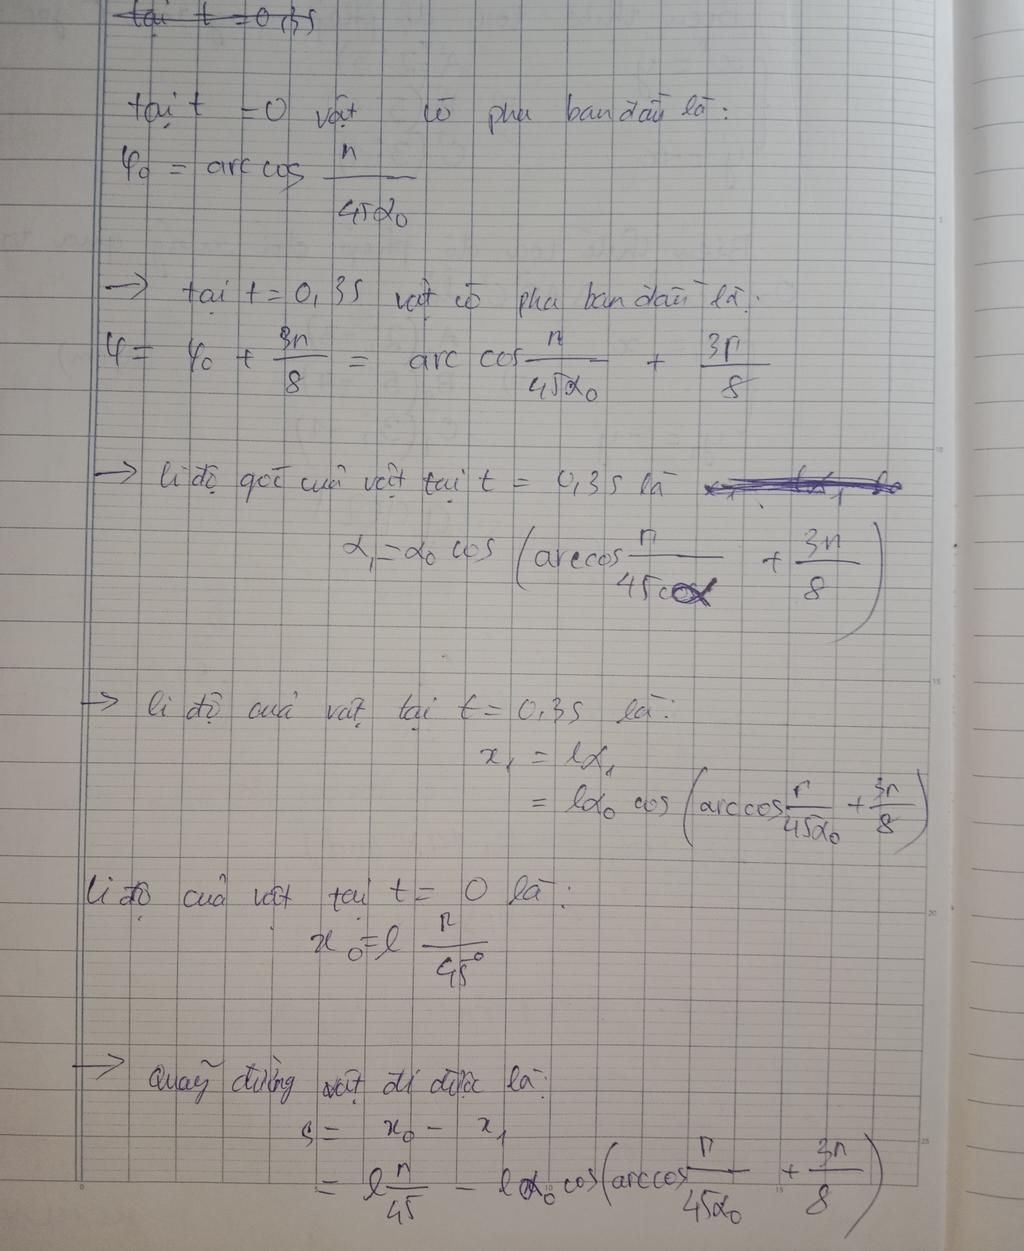 tại t = 0,3s
tại t = 0 vật có pha ban đầu là:
φ₀ = arccos π/(45α₀)
→ tại t = 0,3s vật có pha ban đầu là:
φ = φ₀ + 3π/8 = arc cos π/(45α₀) + 3π/8
→ li độ góc của vật tại t = 0,3s là
α₁ = α₀ cos (arccos π/45 + 3π/8)
→ li độ của vật tại t = 0,3s là:
x₁ = lα₁
= lα₀ cos (arccos π/(45α₀) + 3π/8)
li độ của vật tại t = 0 là:
x₀ = l π/45⁰
→ Quãng đường vật đi được là:
s = x₀ - x₁
= l π/45 - lα₀ cos (arccos π/(45α₀) + 3π/8)